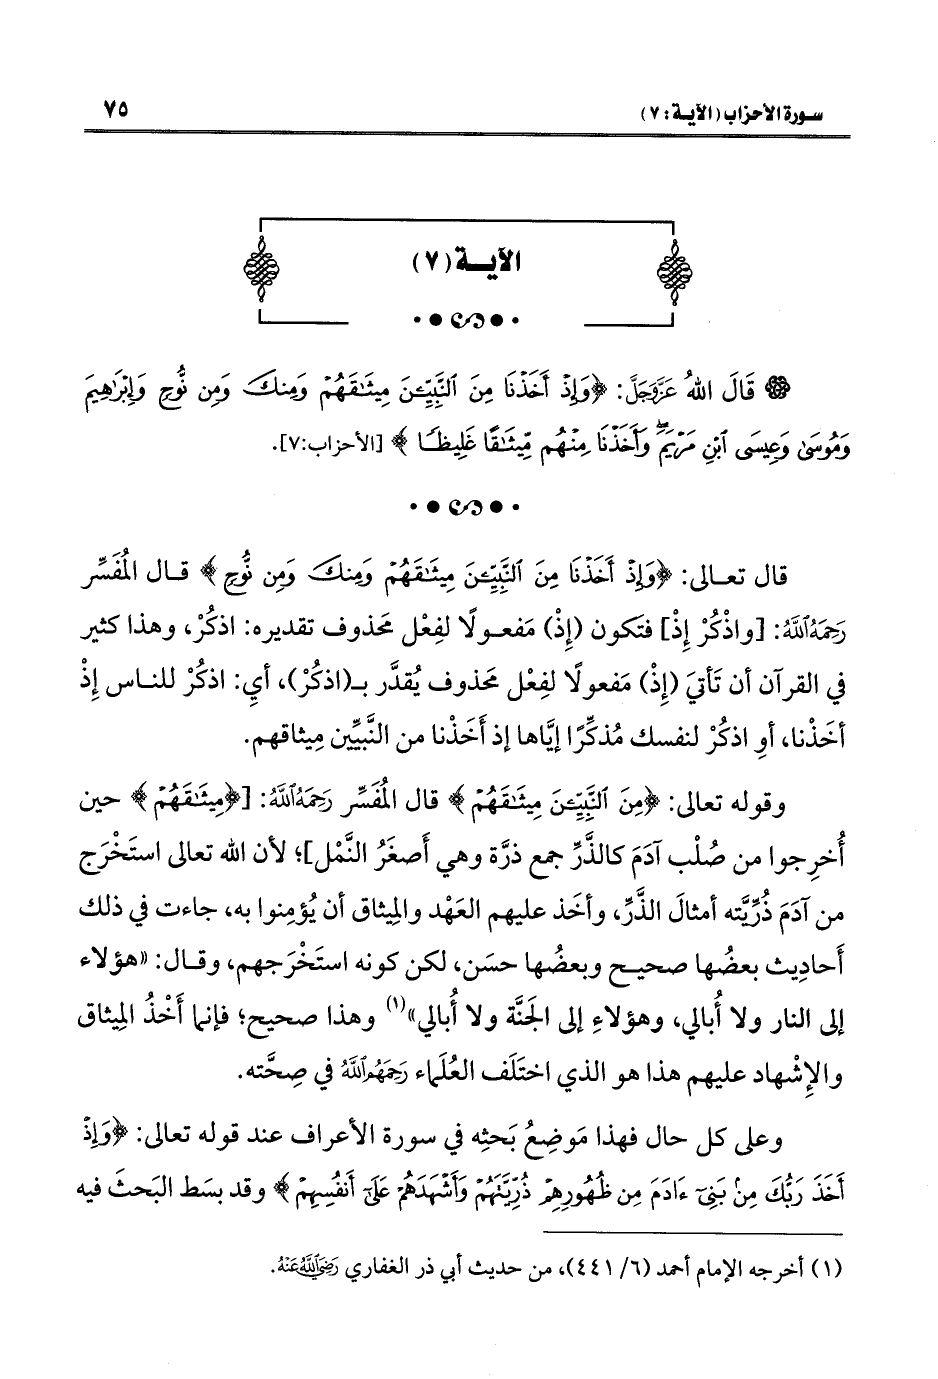 سورة الأحزاب (الآية: ٧)
٧٥
الآيـة (٧)
قَالَ اللهُ عَزَّوَجَلَّ: ﴿وَإِذْ أَخَذْنَا مِنَ ٱلنَّبِيِّـۧنَ مِيثَـٰقَهُمْ وَمِنكَ وَمِن نُّوحٍ وَإِبْرَٰهِيمَ
وَمُوسَىٰ وَعِيسَى ٱبْنِ مَرْيَمَ ۖ وَأَخَذْنَا مِنْهُم مِّيثَـٰقًا غَلِيظًـا﴾ [الأحزاب:٧].
قال تعـالى: ﴿وَإِذْ أَخَذْنَا مِنَ ٱلنَّبِيِّـۧنَ مِيثَـٰقَهُمْ وَمِنكَ وَمِن نُّوحٍ﴾ قـال المُفَسِّر
رَحِمَهُ ٱللَّهُ: [واذْكُرْ إِذْ] فتَكون (إِذْ) مَفعـولًا لفِعْل مَحذوف تقديره: اذكُرْ، وهذا كثير
في القرآن أن تَأتيَ (إِذْ) مَفعولًا لفِعْل مَحذوف يُقدَّر بـ(اذكُرْ)، أيِ: اذكُرْ للنـاس إِذْ
أخَذْنا، أوِ اذكُرْ لنفسك مُذكِّرًا إيَّاها إذ أخَذْنا من النَّبيِّين مِيثاقهم.
وقوله تعالى: ﴿مِنَ ٱلنَّبِيِّـۧنَ مِيثَـٰقَهُمْ﴾ قال المُفَسِّر رَحِمَهُ ٱللَّهُ: [﴿مِيثَـٰقَهُمْ﴾ حين
أُخرِجوا من صُلْب آدَمَ كالذَّرِّ جمع ذرَّة وهي أَصغَرُ النَّمْل]؛ لأن الله تعالى استَخْرَج
من آدَمَ ذُرِّيَّته أمثالَ الذَّرِّ، وأخَذ عليهم العَهْد والمِيثاق أن يُؤمِنوا به، جاءت في ذلك
أحاديث بعضُها صحيـح وبعضُها حسَن، لكن كونه استَخْرَجهم، وقـال: «هؤلاء
إلى النار ولا أُبالي، وهؤلاءِ إلى الجَنَّة ولا أُبالي»(١) وهذا صحيح؛ فإنما أَخْذُ المِيثاق
والإِشْهاد عليهم هذا هو الذي اختَلَف العُلَماء رَحِمَهُمُ ٱللَّهُ في صِحَّته.
وعلى كل حال فهذا مَوضِعُ بَحثِه في سورة الأعراف عند قوله تعالى: ﴿وَإِذْ
أَخَذَ رَبُّكَ مِنۢ بَنِىٓ ءَادَمَ مِن ظُهُورِهِمْ ذُرِّيَّتَهُمْ وَأَشْهَدَهُمْ عَلَىٰٓ أَنفُسِهِمْ﴾ وقد بسَط البَحثَ فيه
(١) أخرجه الإمام أحمد (٦/ ٤٤١)، من حديث أبي ذر الغفاري رَضِيَ ٱللَّهُ عَنْهُ.